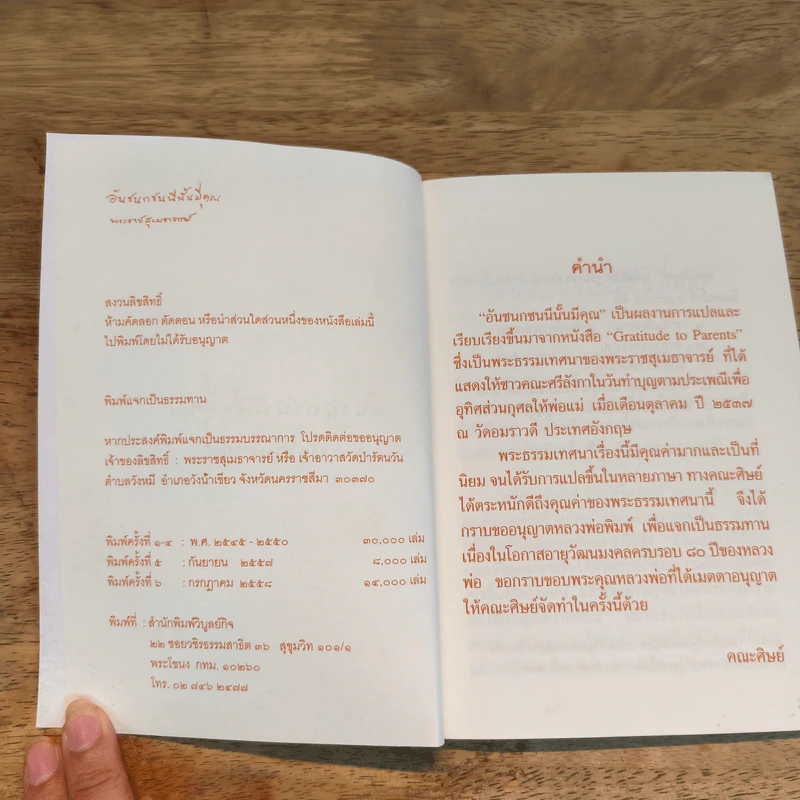 อันชนกชนนีนั้นมีคุณ
พระราชสุเมธาจารย์
สงวนลิขสิทธิ์
ห้ามคัดลอก ตัดตอน หรือนำส่วนใดส่วนหนึ่งของหนังสือเล่มนี้
ไปพิมพ์โดยไม่ได้รับอนุญาต
พิมพ์แจกเป็นธรรมทาน
หากประสงค์พิมพ์แจกเป็นธรรมบรรณาการ โปรดติดต่อขออนุญาต
เจ้าของลิขสิทธิ์ : พระราชสุเมธาจารย์ หรือ เจ้าอาวาสวัดป่ารัตนวัน
ตำบลวังหมี อำเภอวังน้ำเขียว จังหวัดนครราชสีมา ๓๐๓๗๐
พิมพ์ครั้งที่ ๑-๔ : พ.ศ. ๒๕๔๕ - ๒๕๕๐ ๓๐,๐๐๐ เล่ม
พิมพ์ครั้งที่ ๕ : กันยายน ๒๕๕๗ ๘,๐๐๐ เล่ม
พิมพ์ครั้งที่ ๖ : กรกฎาคม ๒๕๕๘ ๑๔,๐๐๐ เล่ม
พิมพ์ที่ : สำนักพิมพ์วิบูลย์กิจ
๒๒ ซอยวชิรธรรมสาธิต ๓๖ สุขุมวิท ๑๐๑/๑
พระโขนง กทม. ๑๐๒๖๐
โทร. ๐๒ ๗๔๖ ๒๔๗๗
คำนำ
“อันชนกชนนีนั้นมีคุณ” เป็นผลงานการแปลและ
เรียบเรียงขึ้นมาจากหนังสือ “Gratitude to Parents”
ซึ่งเป็นพระธรรมเทศนาของพระราชสุเมธาจารย์ ที่ได้
แสดงให้ชาวคณะศรีลังกาในวันทำบุญตามประเพณีเพื่อ
อุทิศส่วนกุศลให้พ่อแม่ เมื่อเดือนตุลาคม ปี ๒๕๓๗
ณ วัดอมราวดี ประเทศอังกฤษ
พระธรรมเทศนาเรื่องนี้มีคุณค่ามากและเป็นที่
นิยม จนได้รับการแปลขึ้นในหลายภาษา ทางคณะศิษย์
ได้ตระหนักดีถึงคุณค่าของพระธรรมเทศนานี้ จึงได้
กราบขออนุญาตหลวงพ่อพิมพ์ เพื่อแจกเป็นธรรมทาน
เนื่องในโอกาสอายุวัฒนมงคลครบรอบ ๘๐ ปีของหลวง
พ่อ ขอกราบขอบพระคุณหลวงพ่อที่ได้เมตตาอนุญาต
ให้คณะศิษย์จัดทำในครั้งนี้ด้วย
คณะศิษย์